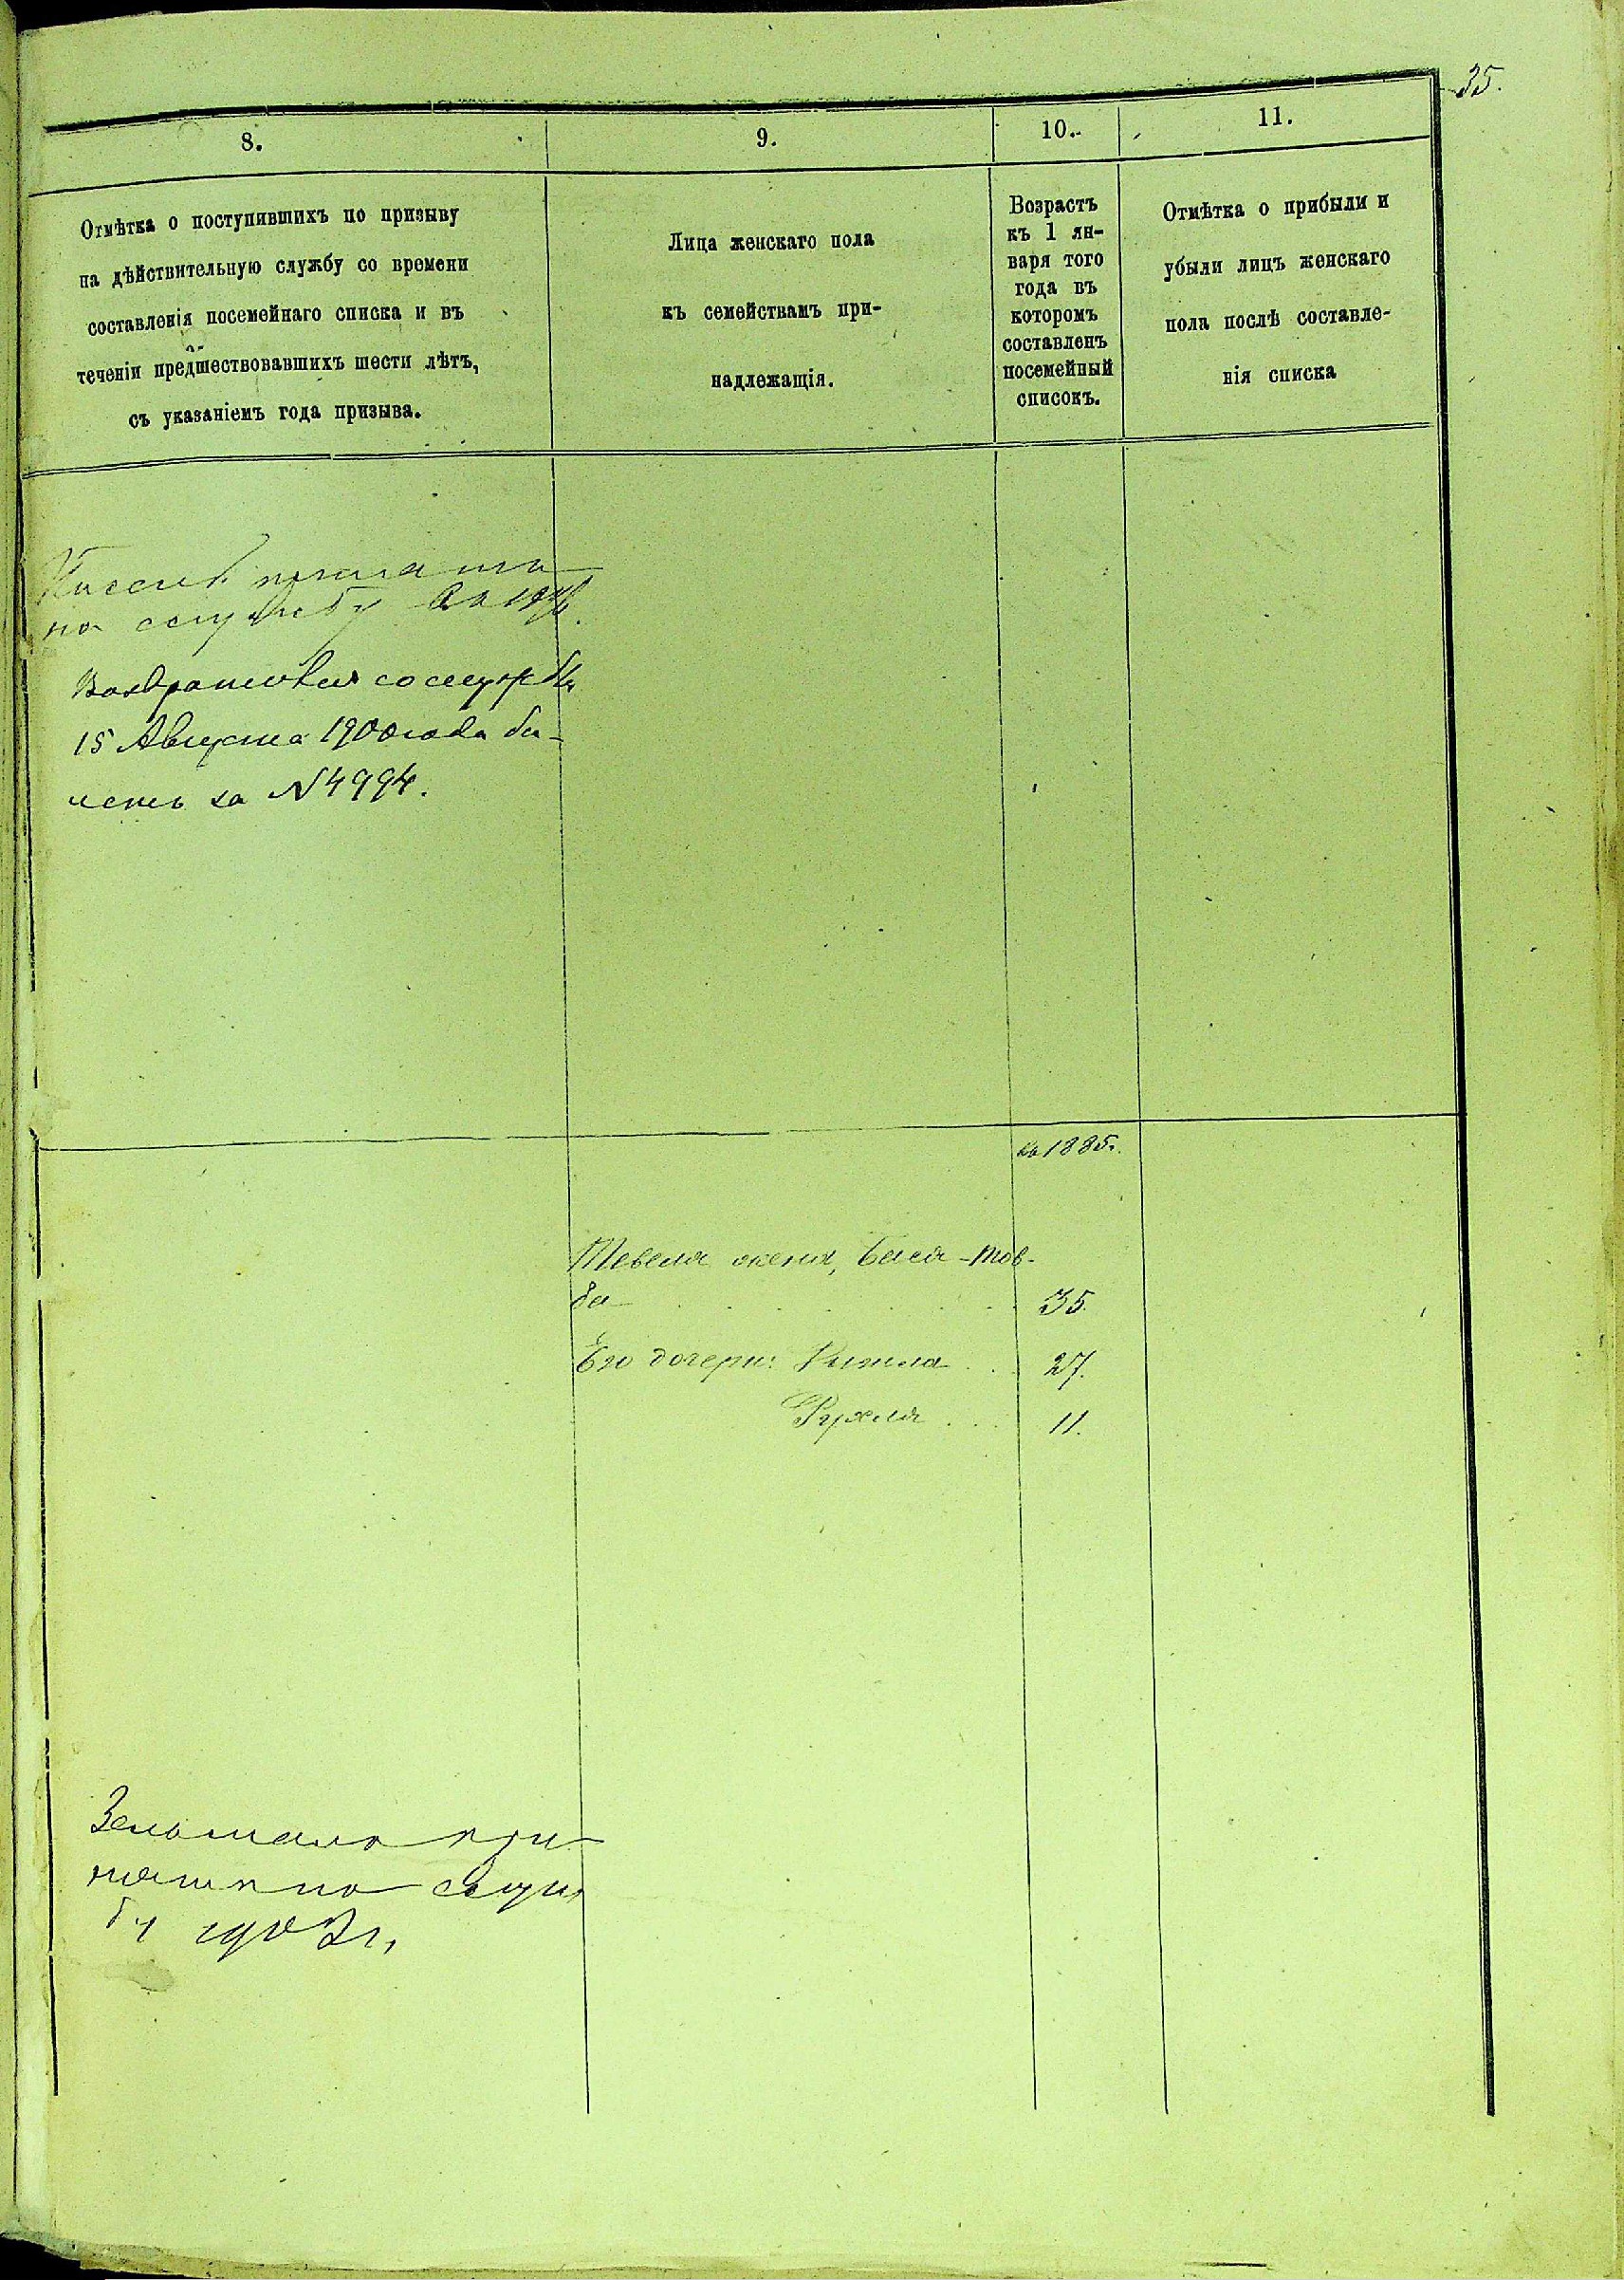 35.
8.
9.
10.
11.
Отмѣтка о поступившихъ по призыву
на дѣйствительную службу со времени
составленія посемейнаго списка и въ
теченіи предшествовавшихъ шести лѣтъ,
съ указаніемъ года призыва.
Лица женскаго пола
къ семействамъ при-
надлежащія.
Возрастъ
къ 1 ян-
варя того
года въ
которомъ
составленъ
посемейный
списокъ.
Отмѣтка о прибыли и
убыли лицъ женскаго
пола послѣ составле-
нія списка
на службу
Возвратился со службы
15 Августа 1900 года би-
летъ за N 4994.
на 1885г.
Тевеля жена, Бася-Тов-
ба 35.
Его дочери: 27.
Рухля 11.
при-
нятъ на служ
бу 1903г.